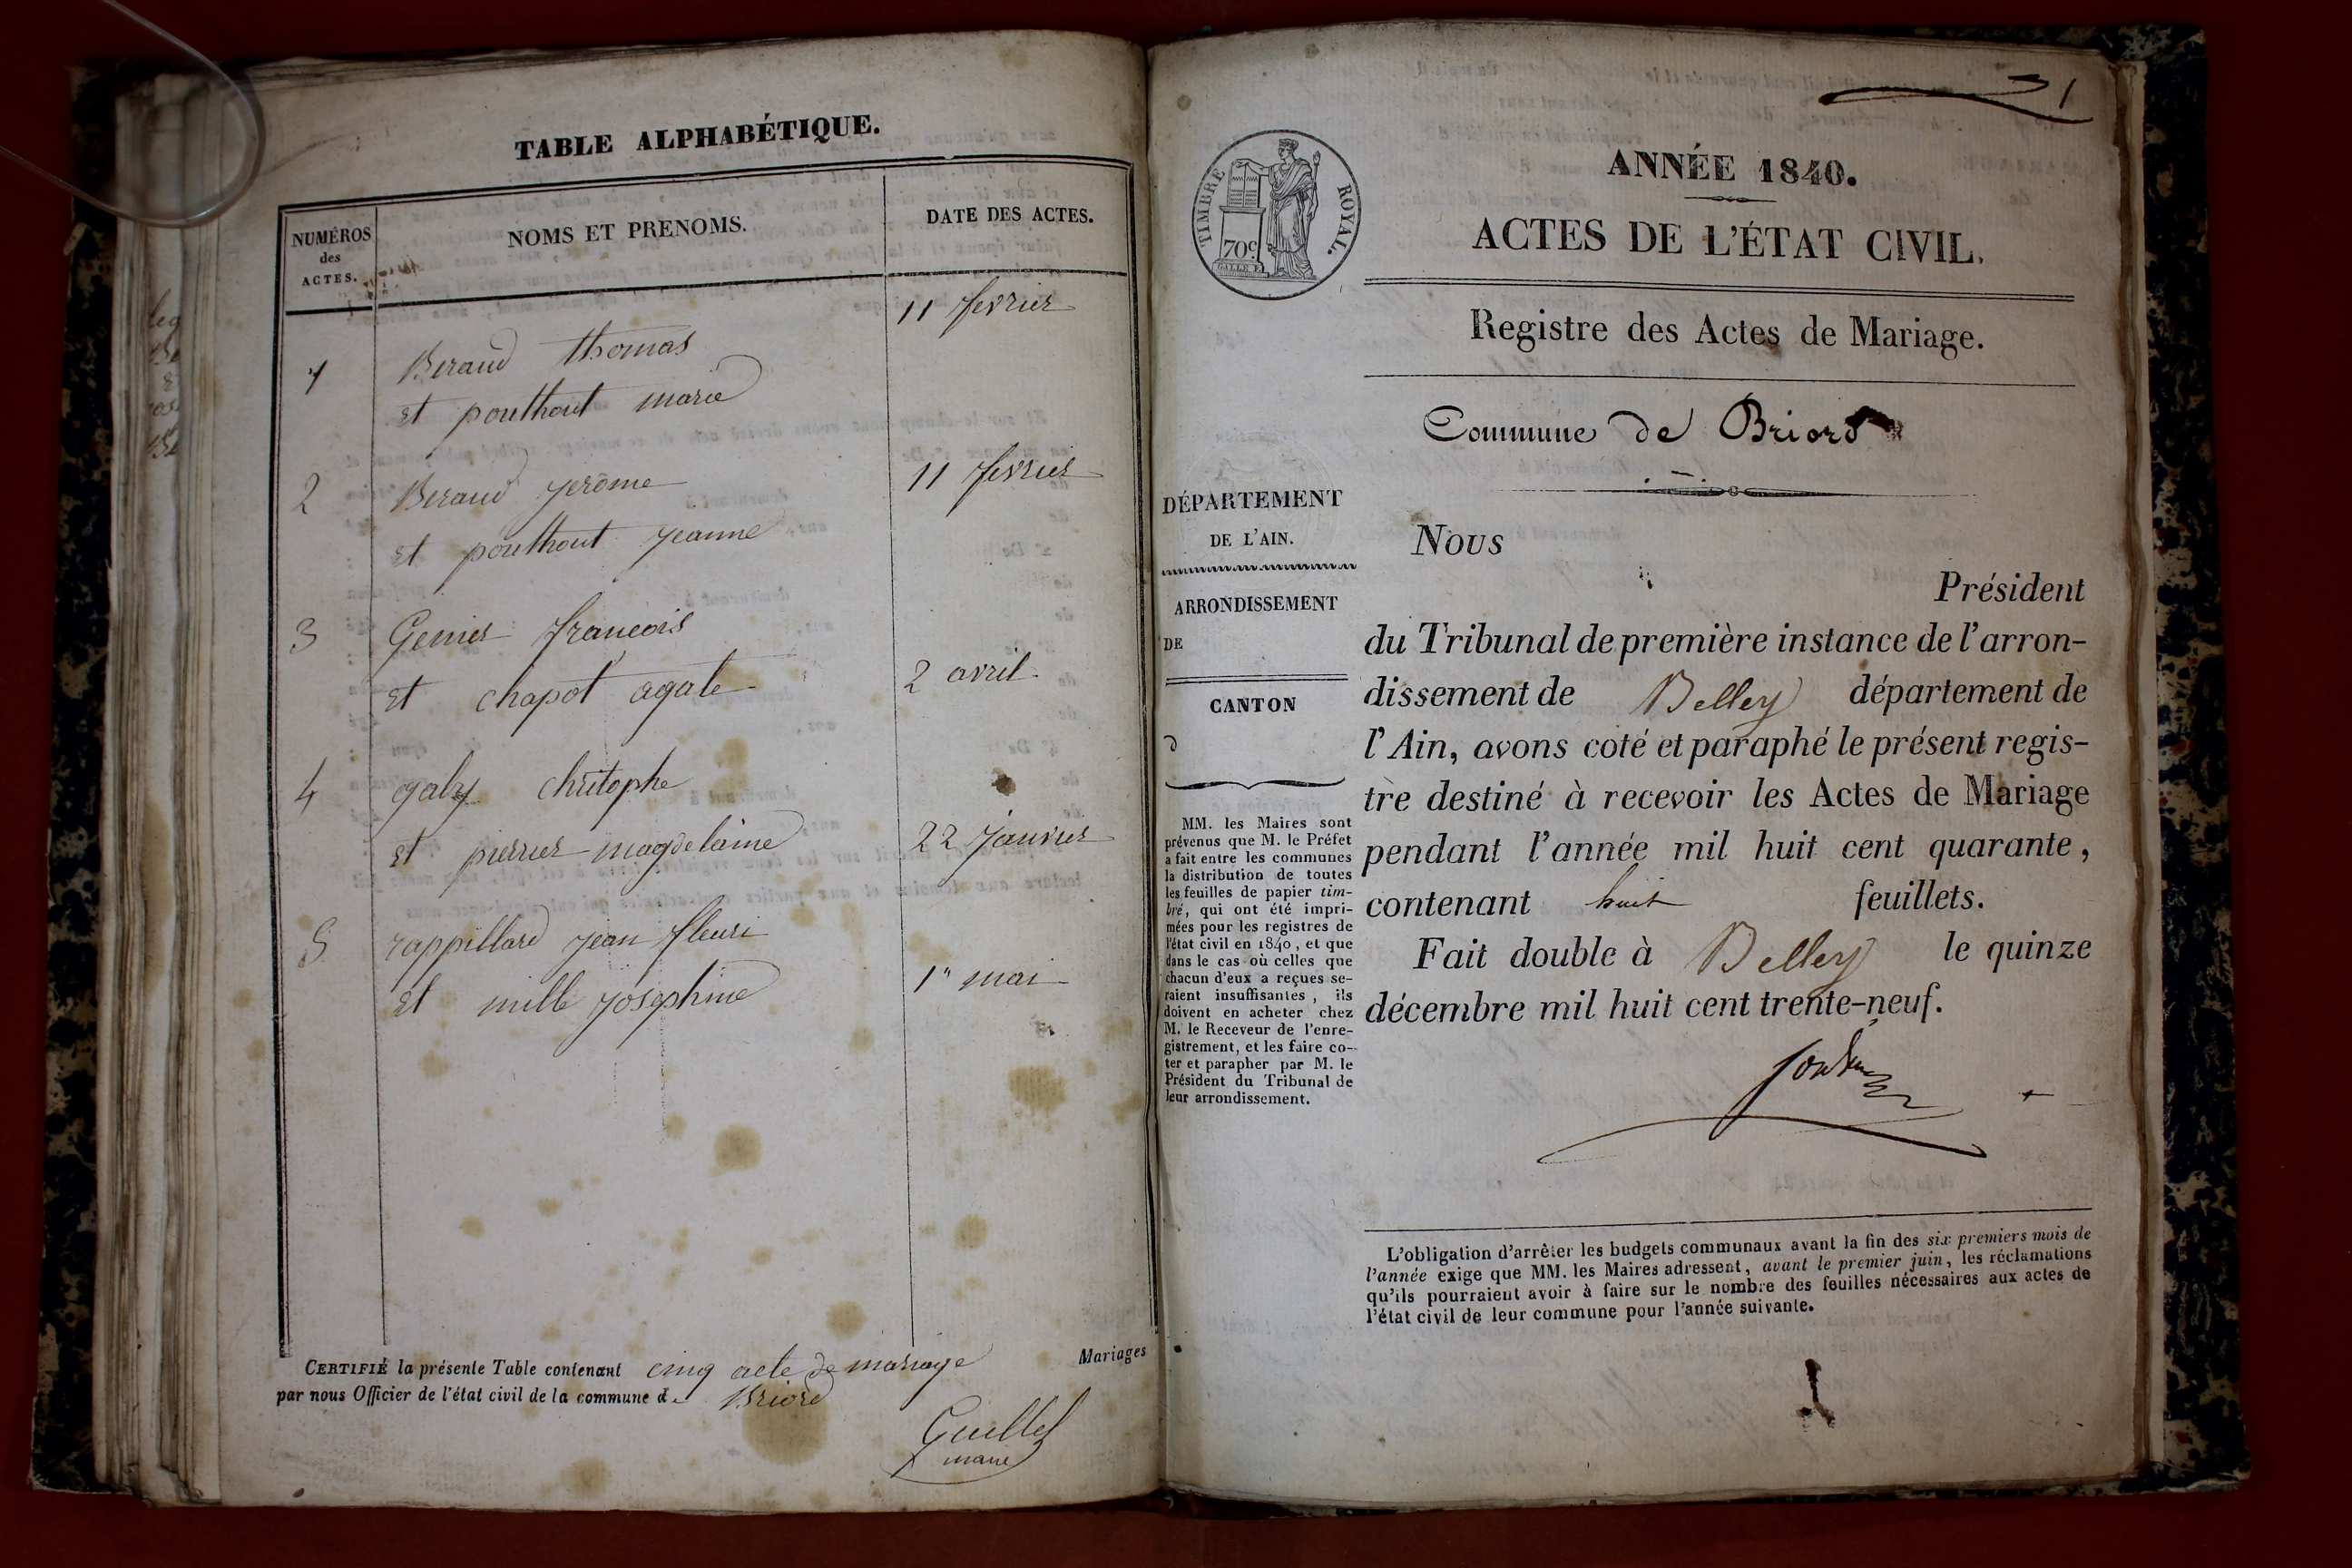 TABLE ALPHABÉTIQUE.
NUMÉROS
des
ACTES.
NOMS ET PRENOMS.
DATE DES ACTES.
11 fevrier
1 Beraud thomas
et pouthout marie
2 Beraud jerôme 11 fevrier
et pouthout jeanne
3 Genier francois
et chapot agate 2 avril
4 galy christophe
et pierrier magdelaine 22 janvier
5 rappillard jean fleuri
et mille josephine 1er mai
CERTIFIÉ la présente Table contenant cinq acte de mariage Mariages
par nous Officier de l'état civil de la commune de Briord
Guillet
maire
1
TIMBRE ROYAL.
70c.
ANNÉE 1840.
ACTES DE L'ÉTAT CIVIL.
Registre des Actes de Mariage.
Commune de Briord
DÉPARTEMENT
DE L'AIN.
ARRONDISSEMENT
DE
CANTON
d
MM. les Maires sont
prévenus que M. le Préfet
a fait entre les communes
la distribution de toutes
les feuilles de papier tim-
bré, qui ont été impri-
mées pour les registres de
l'état civil en 1840, et que
dans le cas où celles que
chacun d'eux a reçues se-
raient insuffisantes, ils
doivent en acheter chez
M. le Receveur de l'enre-
gistrement, et les faire co-
ter et parapher par M. le
Président du Tribunal de
leur arrondissement.
Nous
Président
du Tribunal de première instance de l'arron-
dissement de Belley département de
l'Ain, avons coté et paraphé le présent regis-
tre destiné à recevoir les Actes de Mariage
pendant l'année mil huit cent quarante,
contenant huit feuillets.
Fait double à Belley le quinze
décembre mil huit cent trente-neuf.
L'obligation d'arrêter les budgets communaux avant la fin des six premiers mois de
l'année exige que MM. les Maires adressent, avant le premier juin, les réclamations
qu'ils pourraient avoir à faire sur le nombre des feuilles nécessaires aux actes de
l'état civil de leur commune pour l'année suivante.